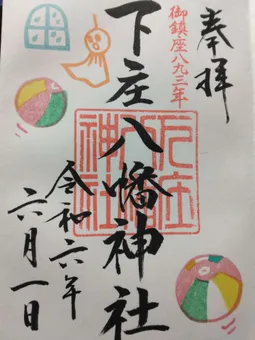 奉拝
御鎮座八九三年
下庄八幡神社
令和六年
六月一日